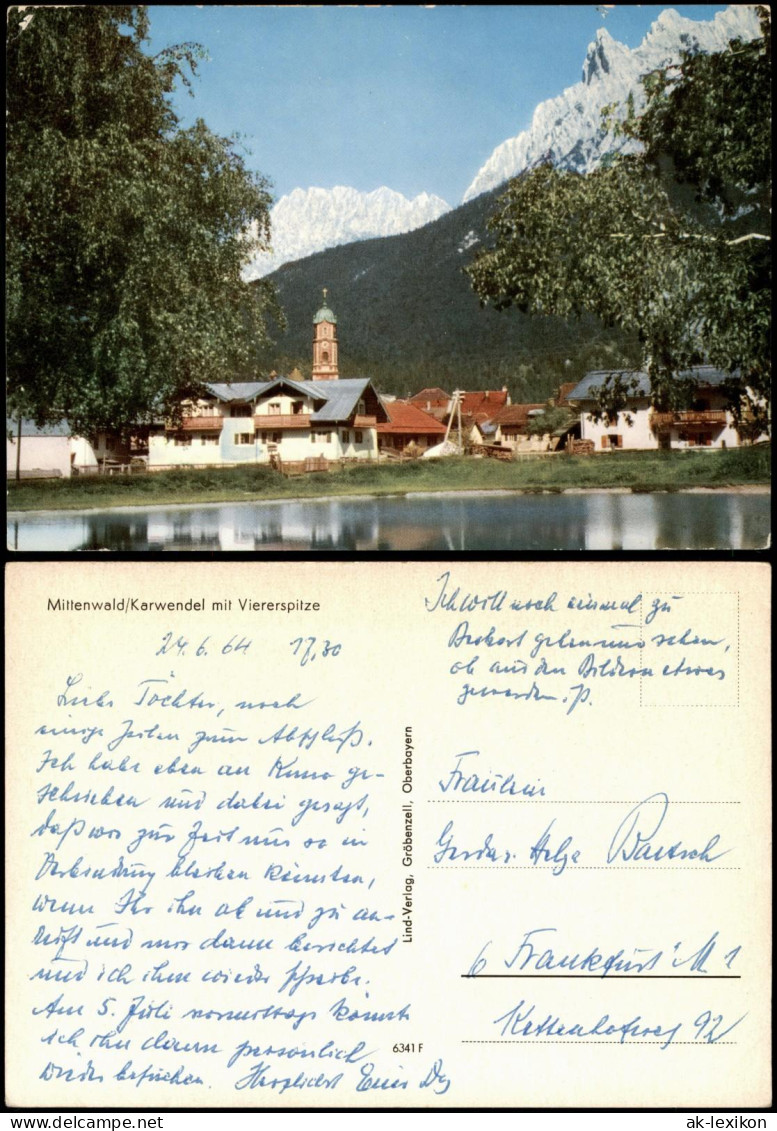 Mittenwald/Karwendel mit Viererspitze
24.6.64 17,30
Liebe Töchter, noch
einige Zeilen zum Abschluß.
Ich habe eben an Kuno ge-
schrieben und dabei gesagt,
daß wir zur Zeit nur so in
Verbindung bleiben könnten,
wenn Ihr ihn ab und zu an-
ruft und mir dann berichtet
und ich ihm wieder schreibe.
Am 5. Juli vormittags könnte
ich ihn dann persönlich
wieder besuchen. Herzlichst Euer
Lind-Verlag, Gröbenzell, Oberbayern
6341 F
Ich will noch einmal zu
gehen und sehen,
ob aus den Bildern etwas
geworden ist.
Fräulein
Gerda u. Helga Bartsch
6 Frankfurt M 1
Kettenhofweg 92
ak-lexikon ak-lexikon.com